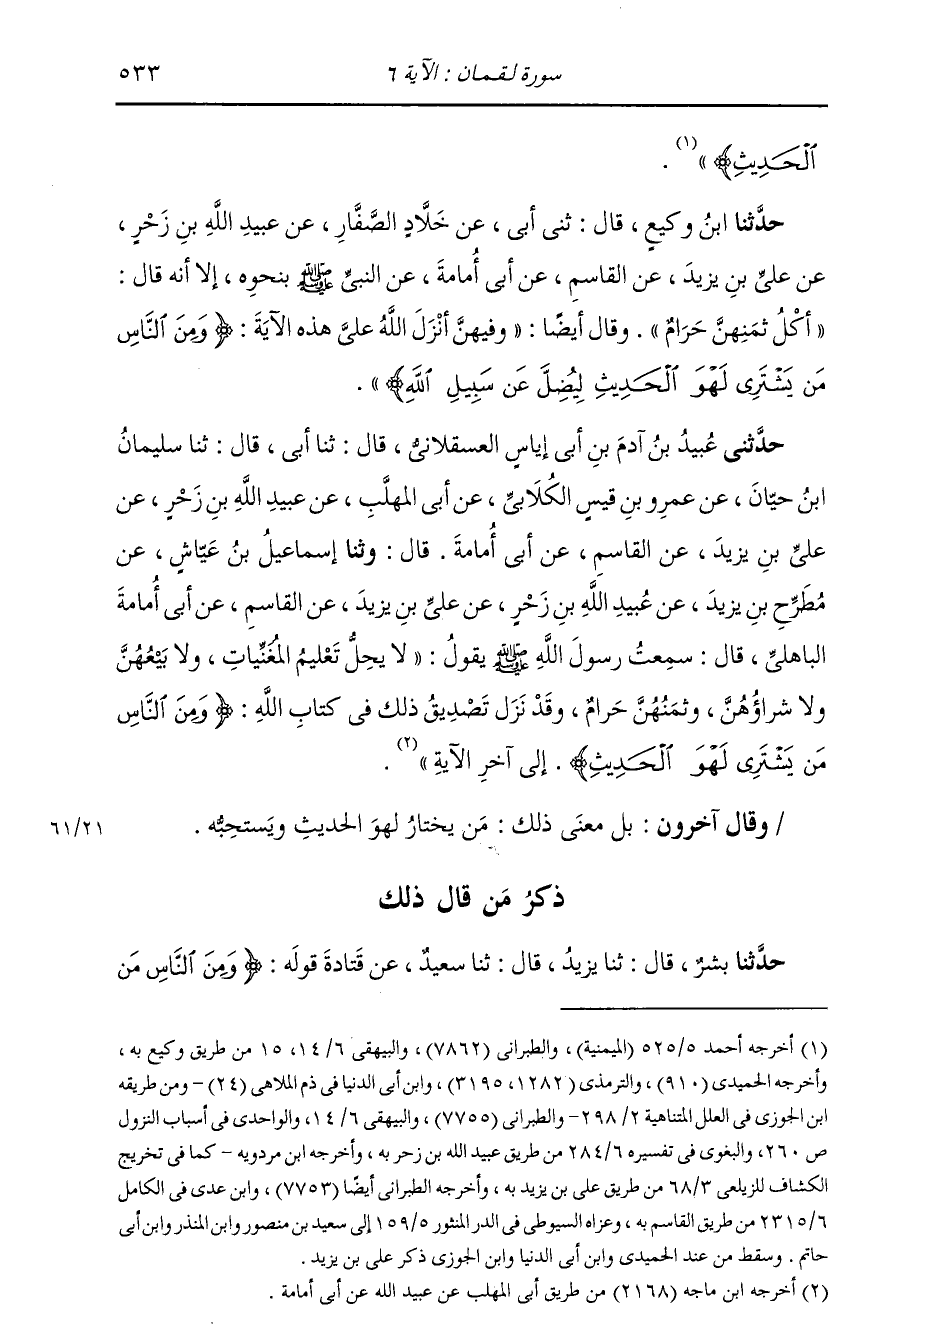 سورة لقمان : الآية ٦ ٥٣٣
ٱلْحَدِيثِ﴾ »(١) .
حدَّثنا ابنُ وكيعٍ ، قال : ثنى أبى ، عن خَلَّادٍ الصَّفَّارِ ، عن عبيدِ اللَّهِ بنِ زَحْرٍ ،
عن علىِّ بنِ يزيدَ ، عن القاسمِ ، عن أبى أُمامةَ ، عن النبىِّ ﷺ بنحوِه ، إلا أنه قال :
« أكْلُ ثمَنِهنَّ حَرَامٌ » . وقال أيضًا : « وفيهنَّ أنْزَلَ اللَّهُ علىَّ هذه الآيةَ : ﴿ وَمِنَ ٱلنَّاسِ
مَن يَشْتَرِى لَهْوَ ٱلْحَدِيثِ لِيُضِلَّ عَن سَبِيلِ ٱللَّهِ﴾ » .
حدَّثنى عُبيدُ بنُ آدمَ بنِ أبى إياسٍ العسقلانىُّ ، قال : ثنا أبى ، قال : ثنا سليمانُ
ابنُ حيّانَ ، عن عمرِو بنِ قيسٍ الكُلَابىِّ ، عن أبى المهلَّبِ ، عن عبيدِ اللَّهِ بنِ زَحْرٍ ، عن
علىِّ بنِ يزيدَ ، عن القاسمِ ، عن أبى أُمامةَ . قال : وثنا إسماعيلُ بنُ عَيّاشٍ ، عن
مُطَرِّحِ بنِ يزيدَ ، عن عُبيدِ اللَّهِ بنِ زَحْرٍ ، عن علىِّ بنِ يزيدَ ، عن القاسمِ ، عن أبى أُمامةَ
الباهلىِّ ، قال : سمِعتُ رسولَ اللَّهِ ﷺ يقولُ : « لا يحِلُّ تَعْليمُ المُغَنِّياتِ ، ولا بَيْعُهُنَّ
ولا شراؤُهُنَّ ، وثمَنُهُنَّ حَرامٌ ، وقَدْ نَزَل تَصْدِيقُ ذلك فى كتابِ اللَّهِ : ﴿ وَمِنَ ٱلنَّاسِ
مَن يَشْتَرِى لَهْوَ ٱلْحَدِيثِ﴾ . إلى آخرِ الآيةِ »(٢) .
/ وقال آخرون : بل معنَى ذلك : مَن يختارُ لهوَ الحديثِ ويَستحِبُّه . ٦١/٢١
ذكرُ مَن قال ذلك
حدَّثنا بشرٌ ، قال : ثنا يزيدُ ، قال : ثنا سعيدٌ ، عن قَتادةَ قولَه : ﴿ وَمِنَ ٱلنَّاسِ مَن
(١) أخرجه أحمد ٥٢٥/٥ (الميمنية) ، والطبرانى (٧٨٦٢) ، والبيهقى ١٤/٦، ١٥ من طريق وكيع به ،
وأخرجه الحميدى (٩١٠) ، والترمذى (١٢٨٢، ٣١٩٥) ، وابن أبى الدنيا فى ذم الملاهى (٢٤) - ومن طريقه
ابن الجوزى فى العلل المتناهية ٢٩٨/٢ - والطبرانى (٧٧٥٥) ، والبيهقى ١٤/٦، والواحدى فى أسباب النزول
ص ٢٦٠، والبغوى فى تفسيره ٢٨٤/٦ من طريق عبيد الله بن زحر به ، وأخرجه ابن مردويه - كما فى تخريج
الكشاف للزيلعى ٦٨/٣ من طريق على بن يزيد به ، وأخرجه الطبرانى أيضًا (٧٧٥٣) ، وابن عدى فى الكامل
٢٣١٥/٦ من طريق القاسم به ، وعزاه السيوطى فى الدر المنثور ١٥٩/٥ إلى سعيد بن منصور وابن المنذر وابن أبى
حاتم . وسقط من عند الحميدى وابن أبى الدنيا وابن الجوزى ذكر على بن يزيد .
(٢) أخرجه ابن ماجه (٢١٦٨) من طريق أبى المهلب عن عبيد الله عن أبى أمامة .